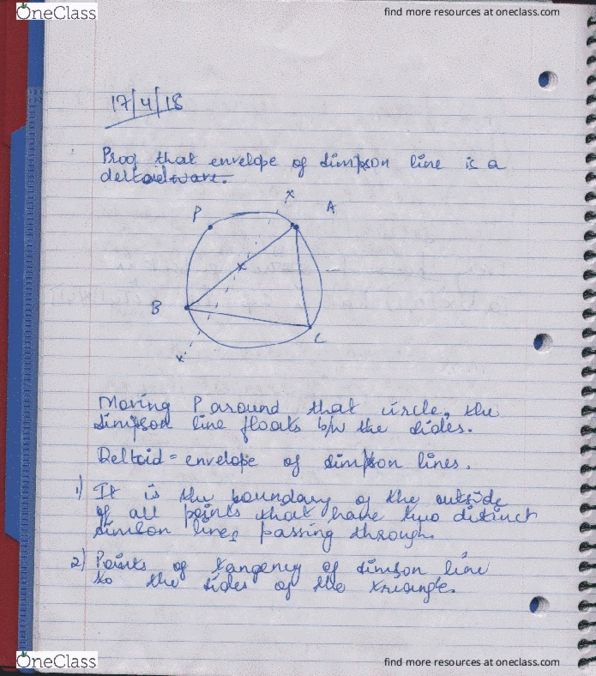 OneClass
find more resources at oneclass.com
17/4/18
Proof that envelope of simpson line is a
deltoid
x
P
A
x
B
C
x
Moving P around that circle, the
simpson line floats b/w the sides.
Deltoid = envelope of simpson lines.
1) It is the boundary of the outside
of all points that have two distinct
simson lines passing through.
2) Points of tangency of simson line
to the sides of the triangle.
OneClass
find more resources at oneclass.com